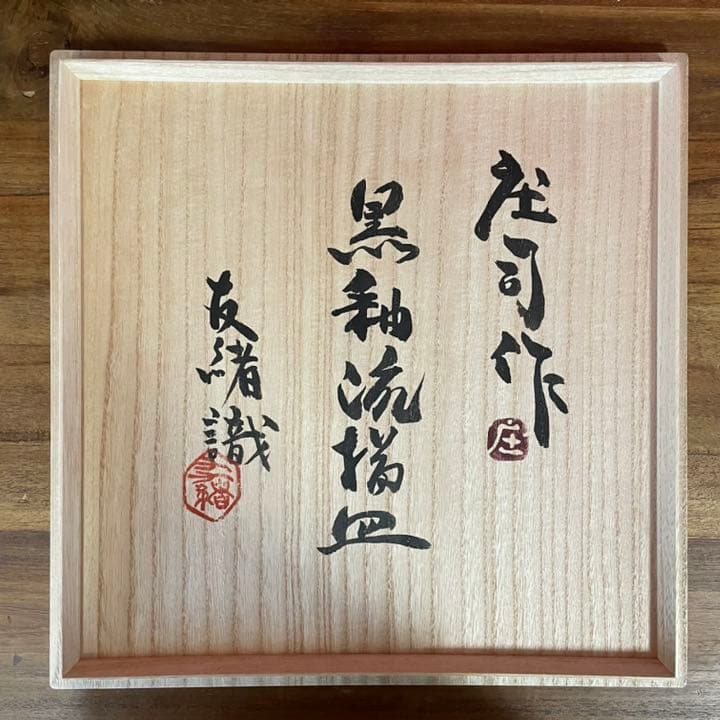 庄司作
庄
黒釉流描皿
友緒識
友緒